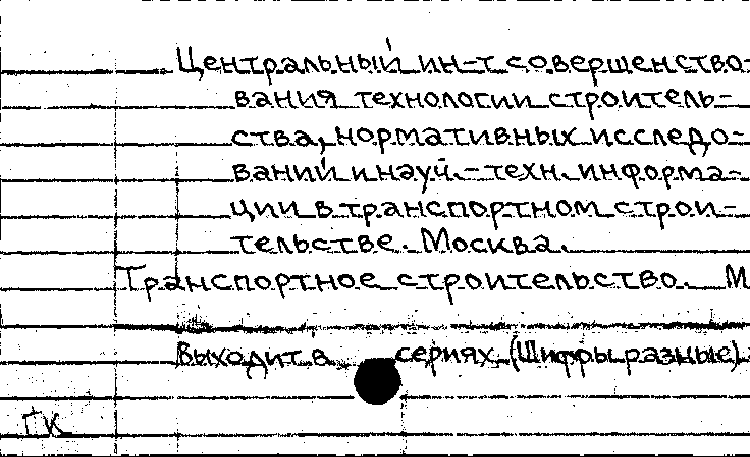 Центральный ин-т совершенство-
вания технологии строитель-
ства, нормативных исследо-
ваний и науч.-техн. информа-
ции в транспортном строи-
тельстве. Москва.
Транспортное строительство. М
Выходит в сериях (Шифры разные)
ГК